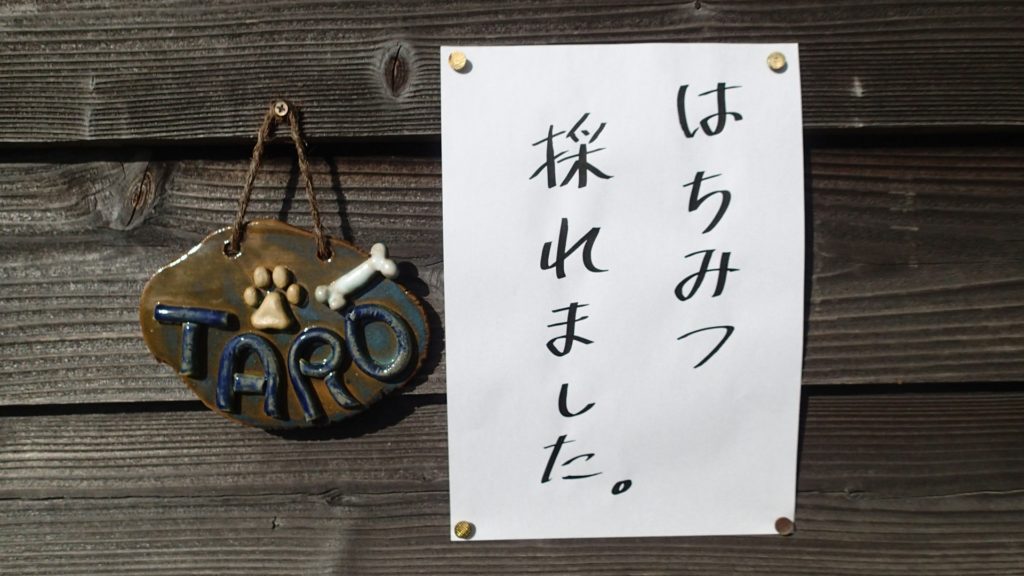 TARO
はちみつ
採れました。